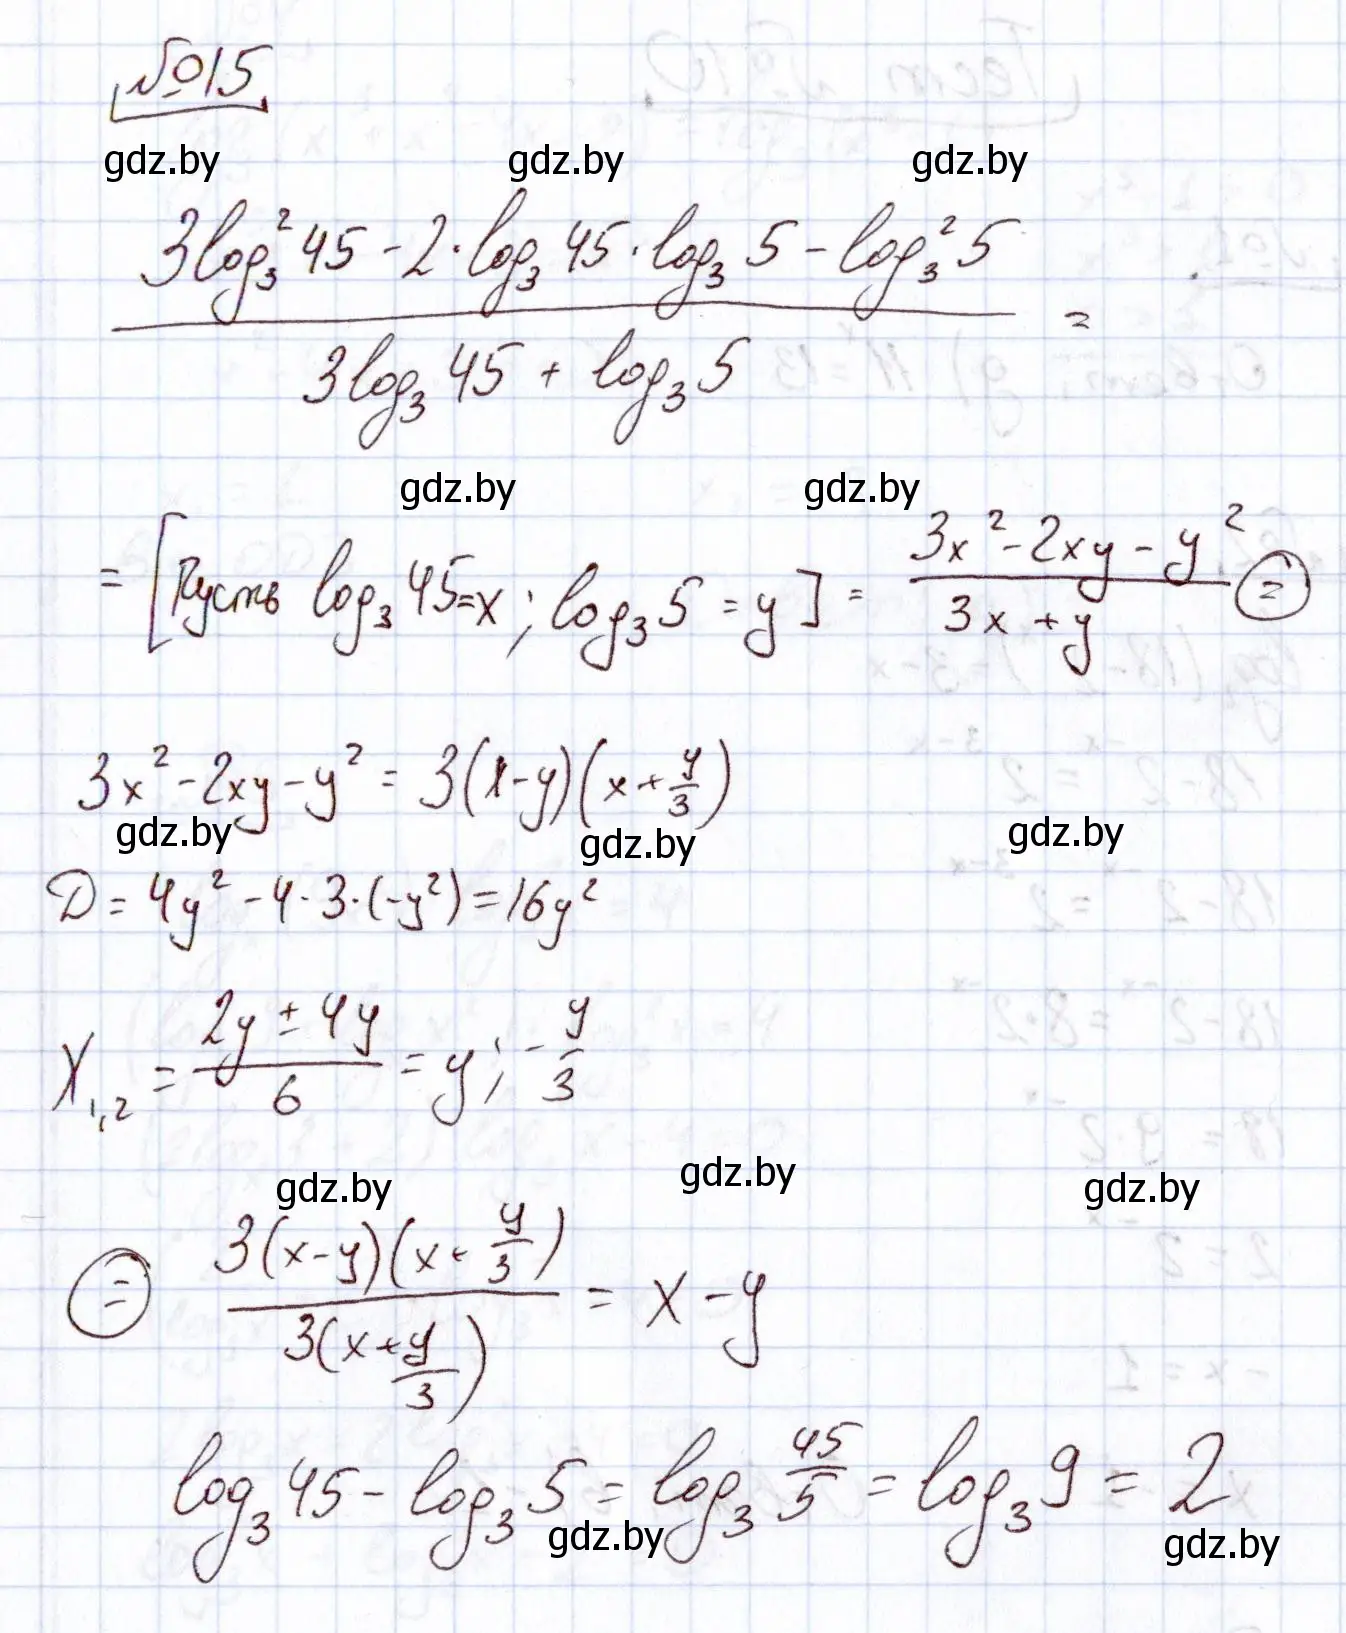 №15
gdz.by gdz.by gdz.by
3log₃²45 - 2·log₃45·log₃5 - log₃²5
3log₃45 + log₃5 =
gdz.by gdz.by
= [Пусть log₃45=x; log₃5=y] = (3x²-2xy-y²)/(3x+y) =
3x²-2xy-y² = 3(x-y)(x+y/3)
gdz.by gdz.by gdz.by
D = 4y²-4·3·(-y²)=16y²
X₁,₂ = (2y±4y)/6 = y; -y/3
gdz.by gdz.by gdz.by
= 3(x-y)(x+y/3)/3(x+y/3) = x-y
log₃45 - log₃5 = log₃45/5 = log₃9 = 2
gdz.by gdz.by